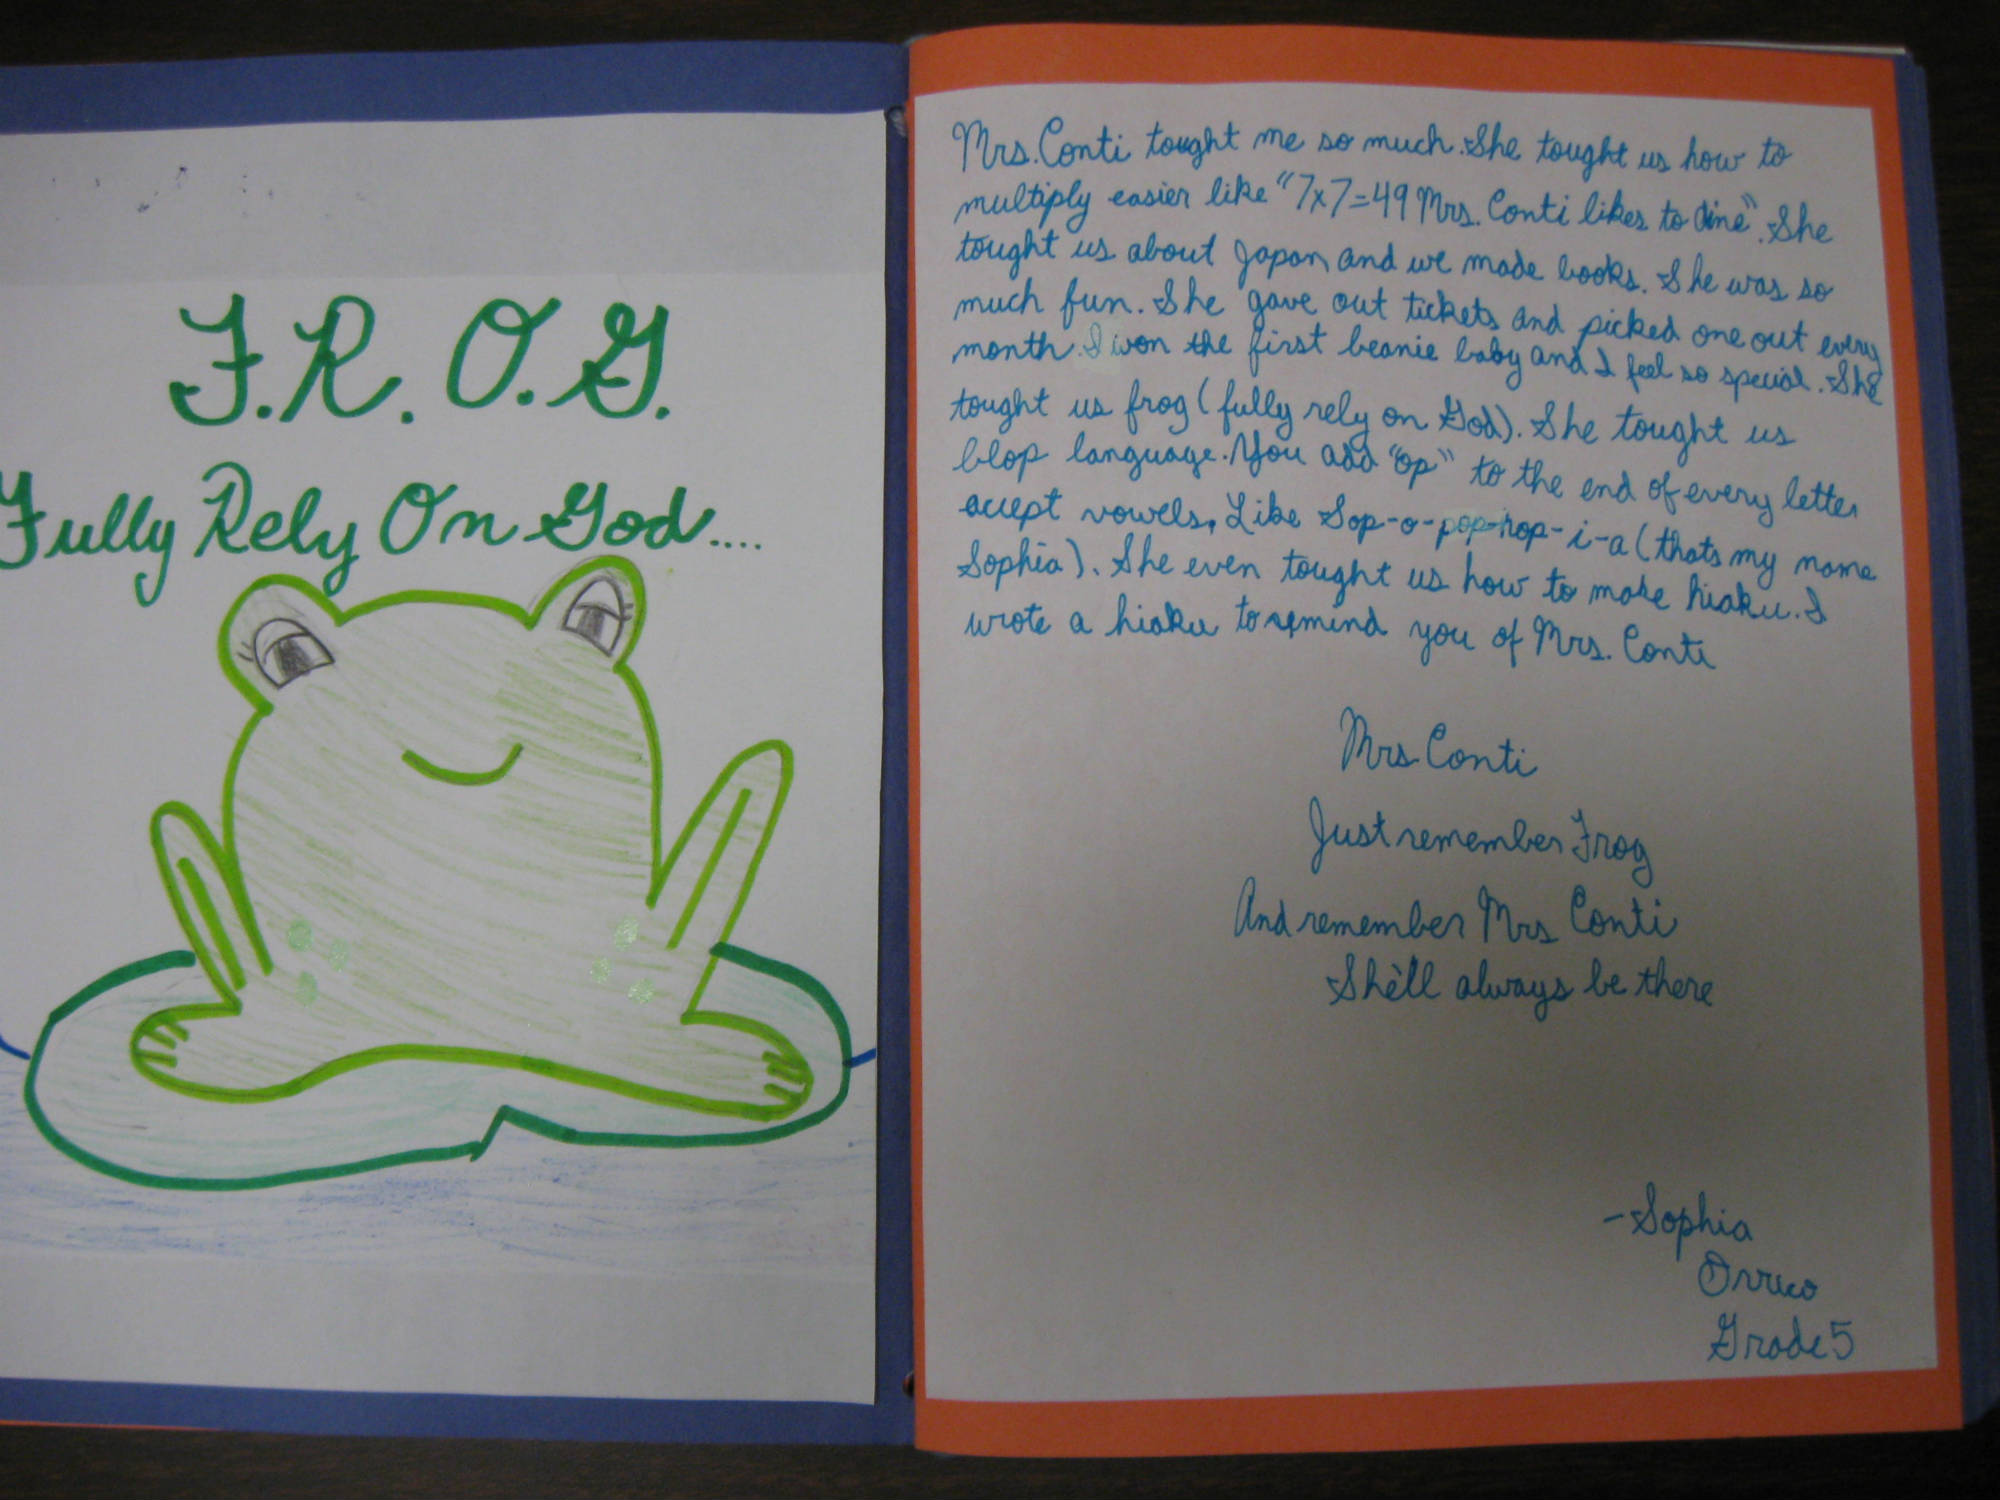 F.R.O.G.
Fully Rely On God....
Mrs. Conti tought me so much. She tought us how to
multiply easier like "7x7=49 Mrs. Conti likes to dine". She
tought us about Japan and we made books. She was so
much fun. She gave out tickets and picked one out every
month. I won the first beanie baby and I feel so special. She
tought us frog (fully rely on God). She tought us
blop language. You add "op" to the end of every letter
accept vowels. Like Sop-o-pop-hop-i-a (thats my name
Sophia). She even tought us how to make hiaku. I
wrote a hiaku to remind you of Mrs. Conti
Mrs Conti
Just remember Frog
And remember Mrs Conti
She'll always be there
-Sophia
Orrico
Grade 5